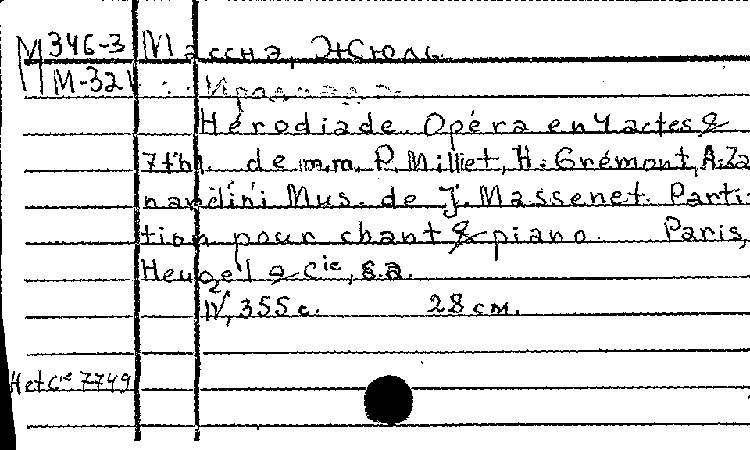 М 346-3 Массна, Жюль
М-321 Иродиада.
Hérodiade. Opéra en 4 actes &
7 tbl. de m.m. P. Milliet, H. Grémont, A. Za
nardini Mus. de J. Massenet. Parti-
tion pour chant & piano. Paris,
Heugel & Cie, s.a.
2
IV, 355 c. 28 см.
H et Cie 7749